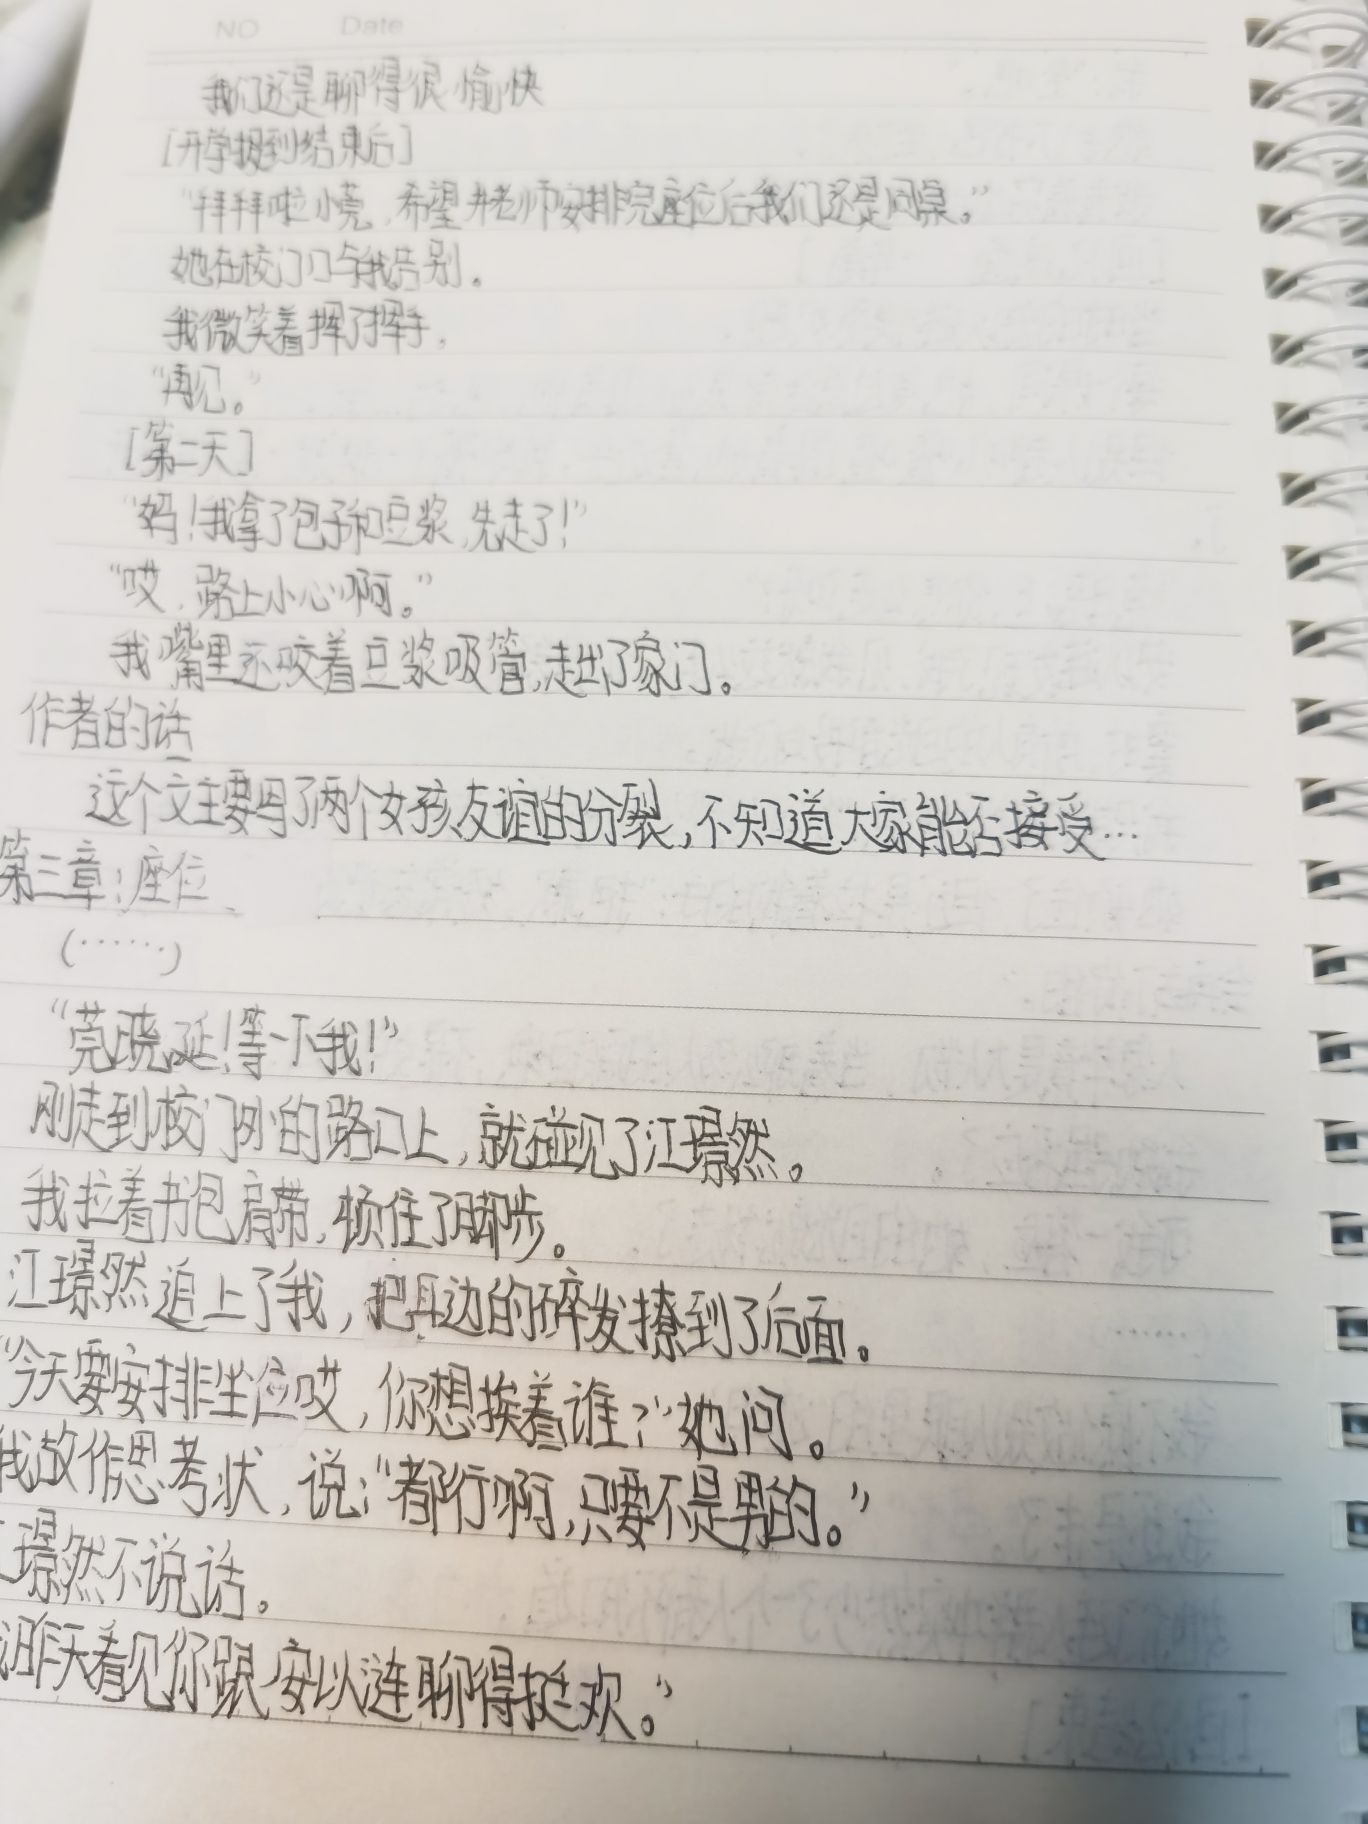 NO Date
我们还是聊得很愉快
[开学报到结束后]
“拜拜啦小莞，希望老师安排完座位后我们还是同桌。”
她在校门口与我告别。
我微笑着挥了挥手，
“再见。”
[第二天]
“妈！我拿了包子和豆浆，先走了！”
“哎，路上小心啊。”
我嘴里还咬着豆浆吸管，走出了家门。
作者的话
这个文主要写了两个女孩友谊的分裂，不知道大家能否接受…
第三章：座位
(……)
“莞晓延！等一下我！”
刚走到校门外的路口上，就碰见了江璟然。
我拉着书包肩带，顿住了脚步。
江璟然追上了我，把耳边的碎发撩到了后面。
“今天要安排坐位哎，你想挨着谁？”她问。
我故作思考状，说：“都行啊，只要不是男的。”
江璟然不说话。
我昨天看见你跟安以涟聊得挺欢。”